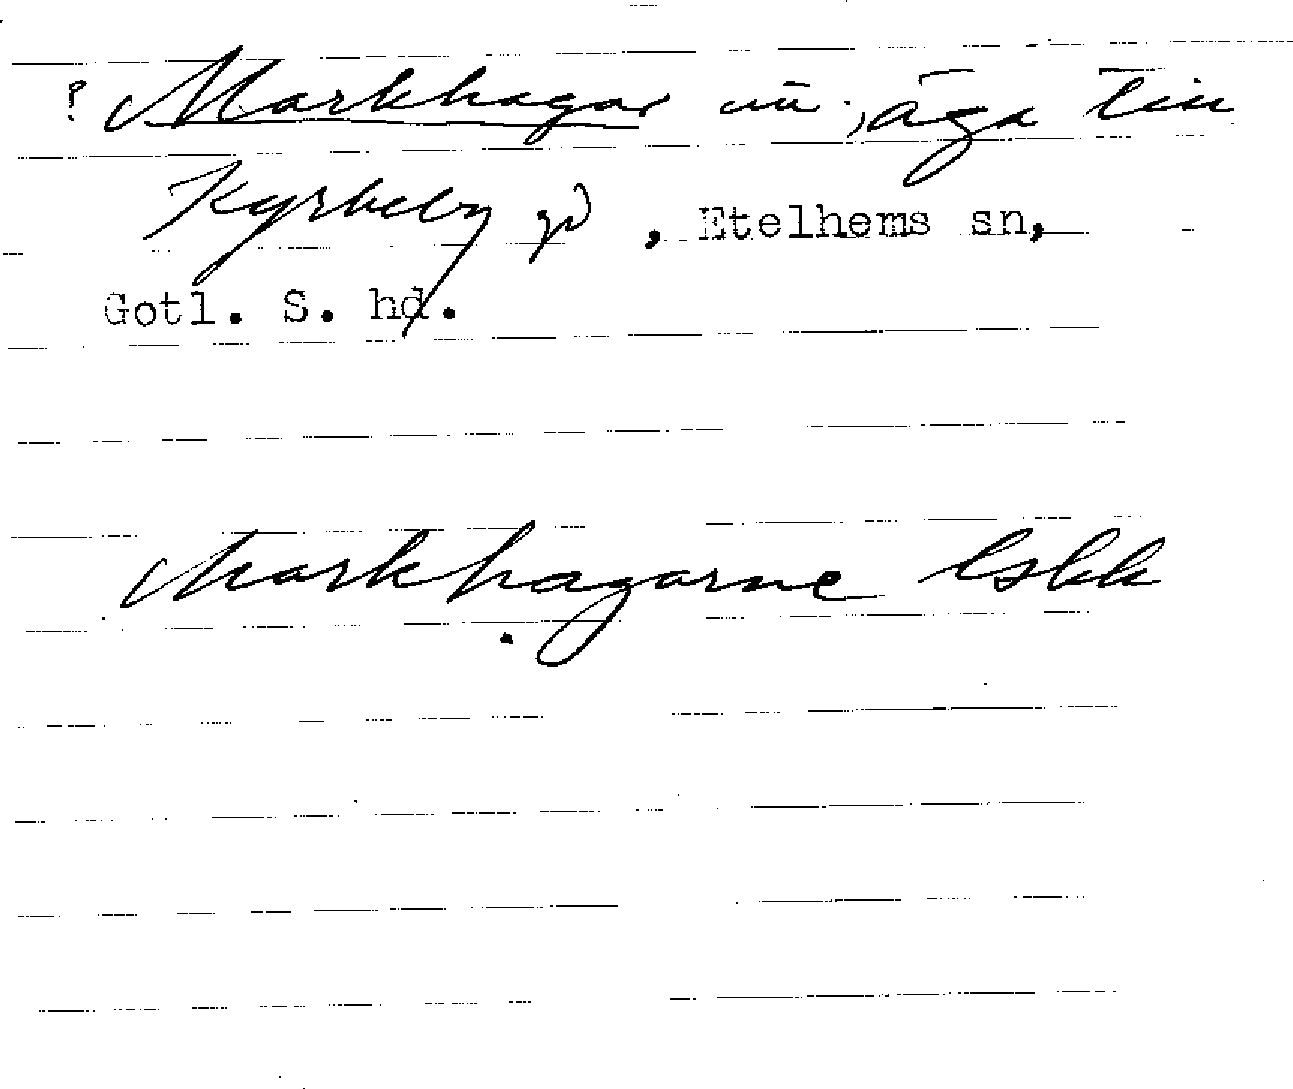 ? Markhagar nä, äga till
Kyrkeby gd, Etelhems sn,
Gotl. S. hd.
Markhagarne lskk